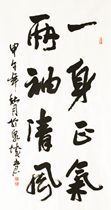 一身正氣
兩袖清風
甲午年秋月